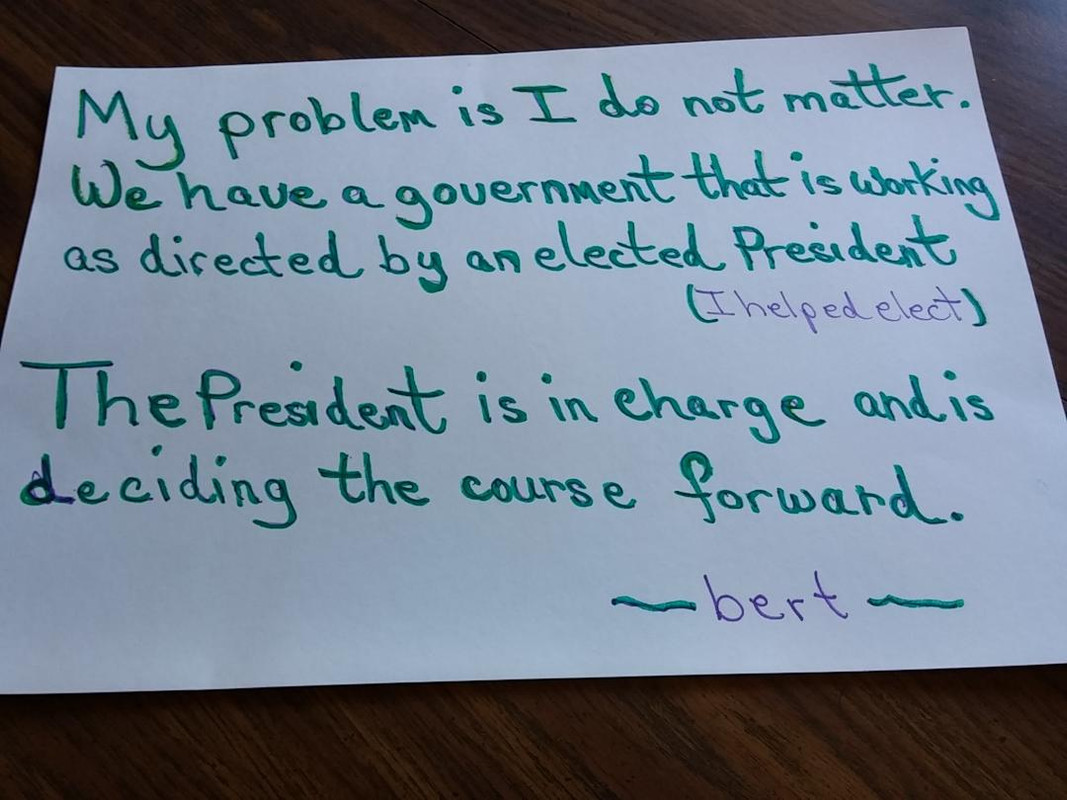 My problem is I do not matter.
We have a government that is working
as directed by an elected President
(I helped elect)
The President is in charge and is
deciding the course forward.
~ bert ~